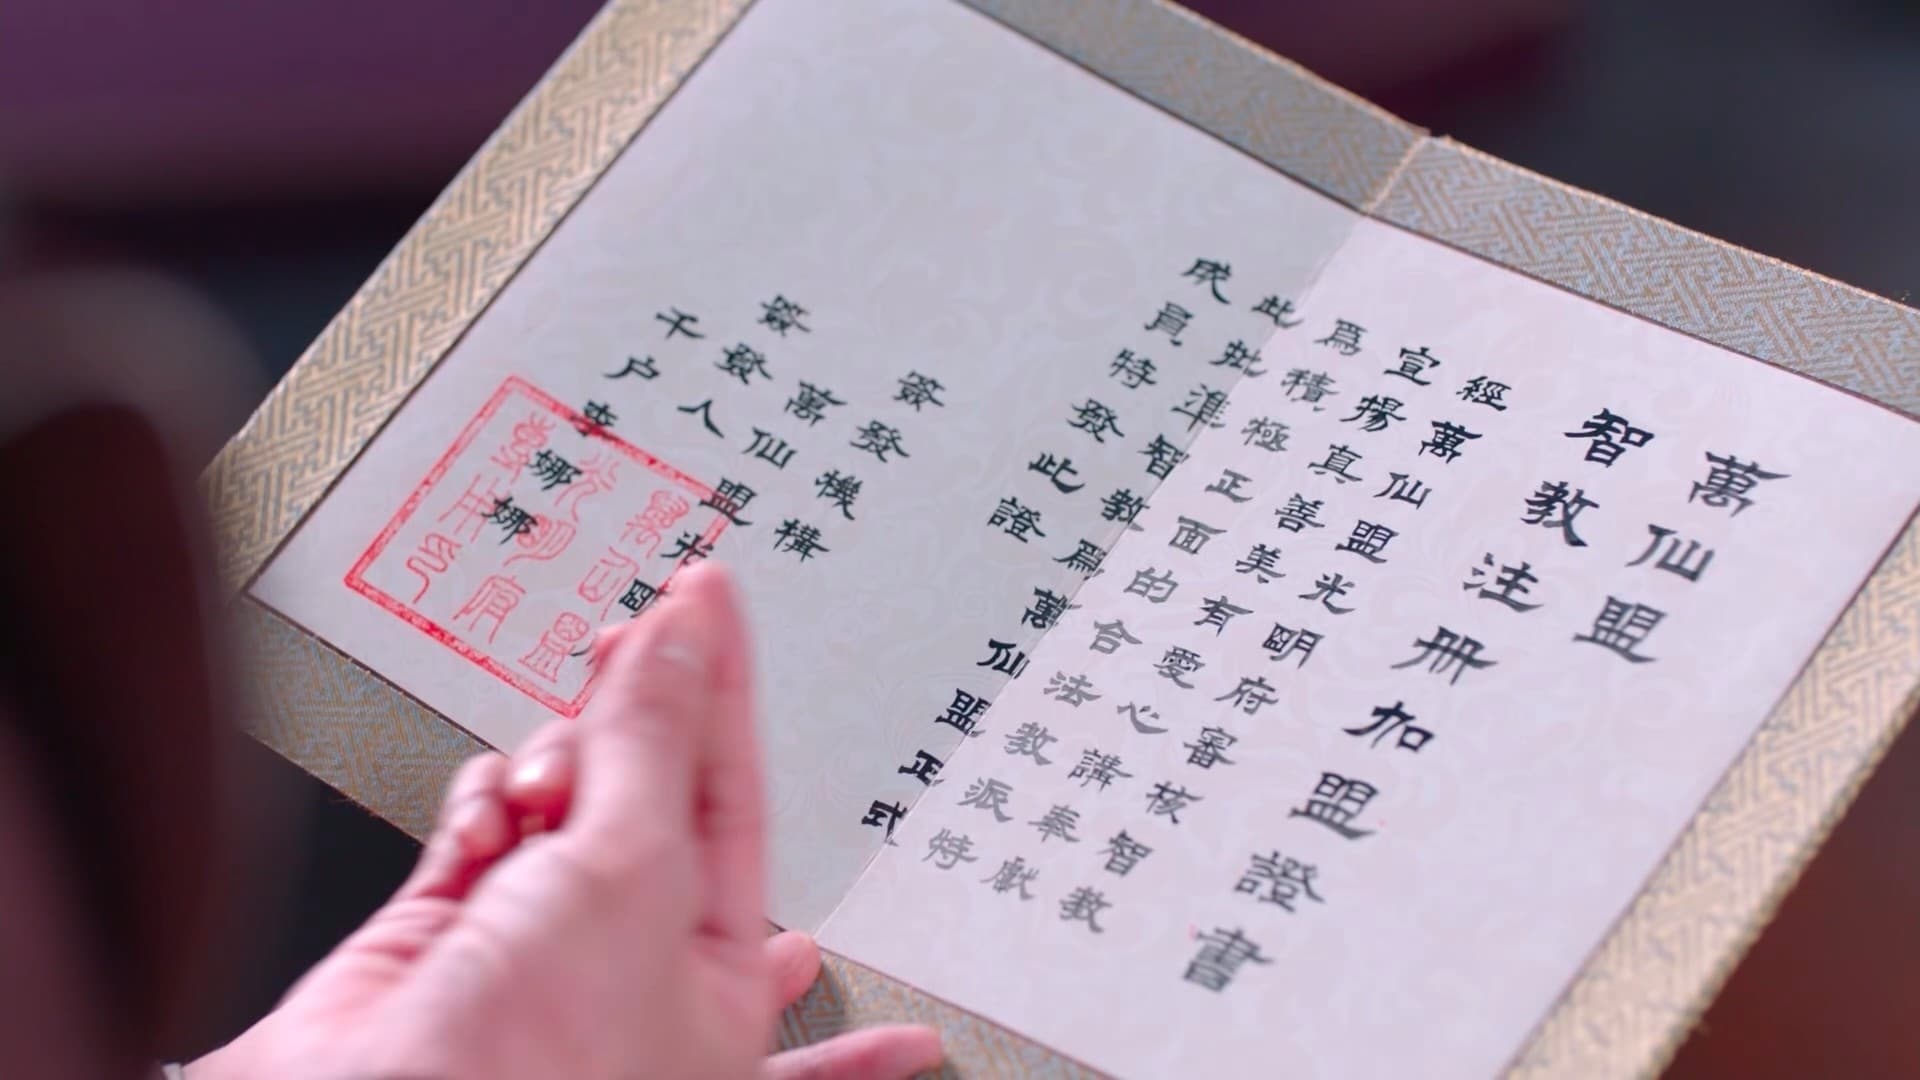 萬仙盟
智教注册加盟證書
經萬仙盟光明府審核智教
宣揚真善美有愛心講奉獻
爲積極正面的合法教派特
此批準智教爲萬仙盟正式
成員特發此證
簽發機構
萬仙盟光明
簽發人
千户李娜娜
萬仙盟
光明府
專用印